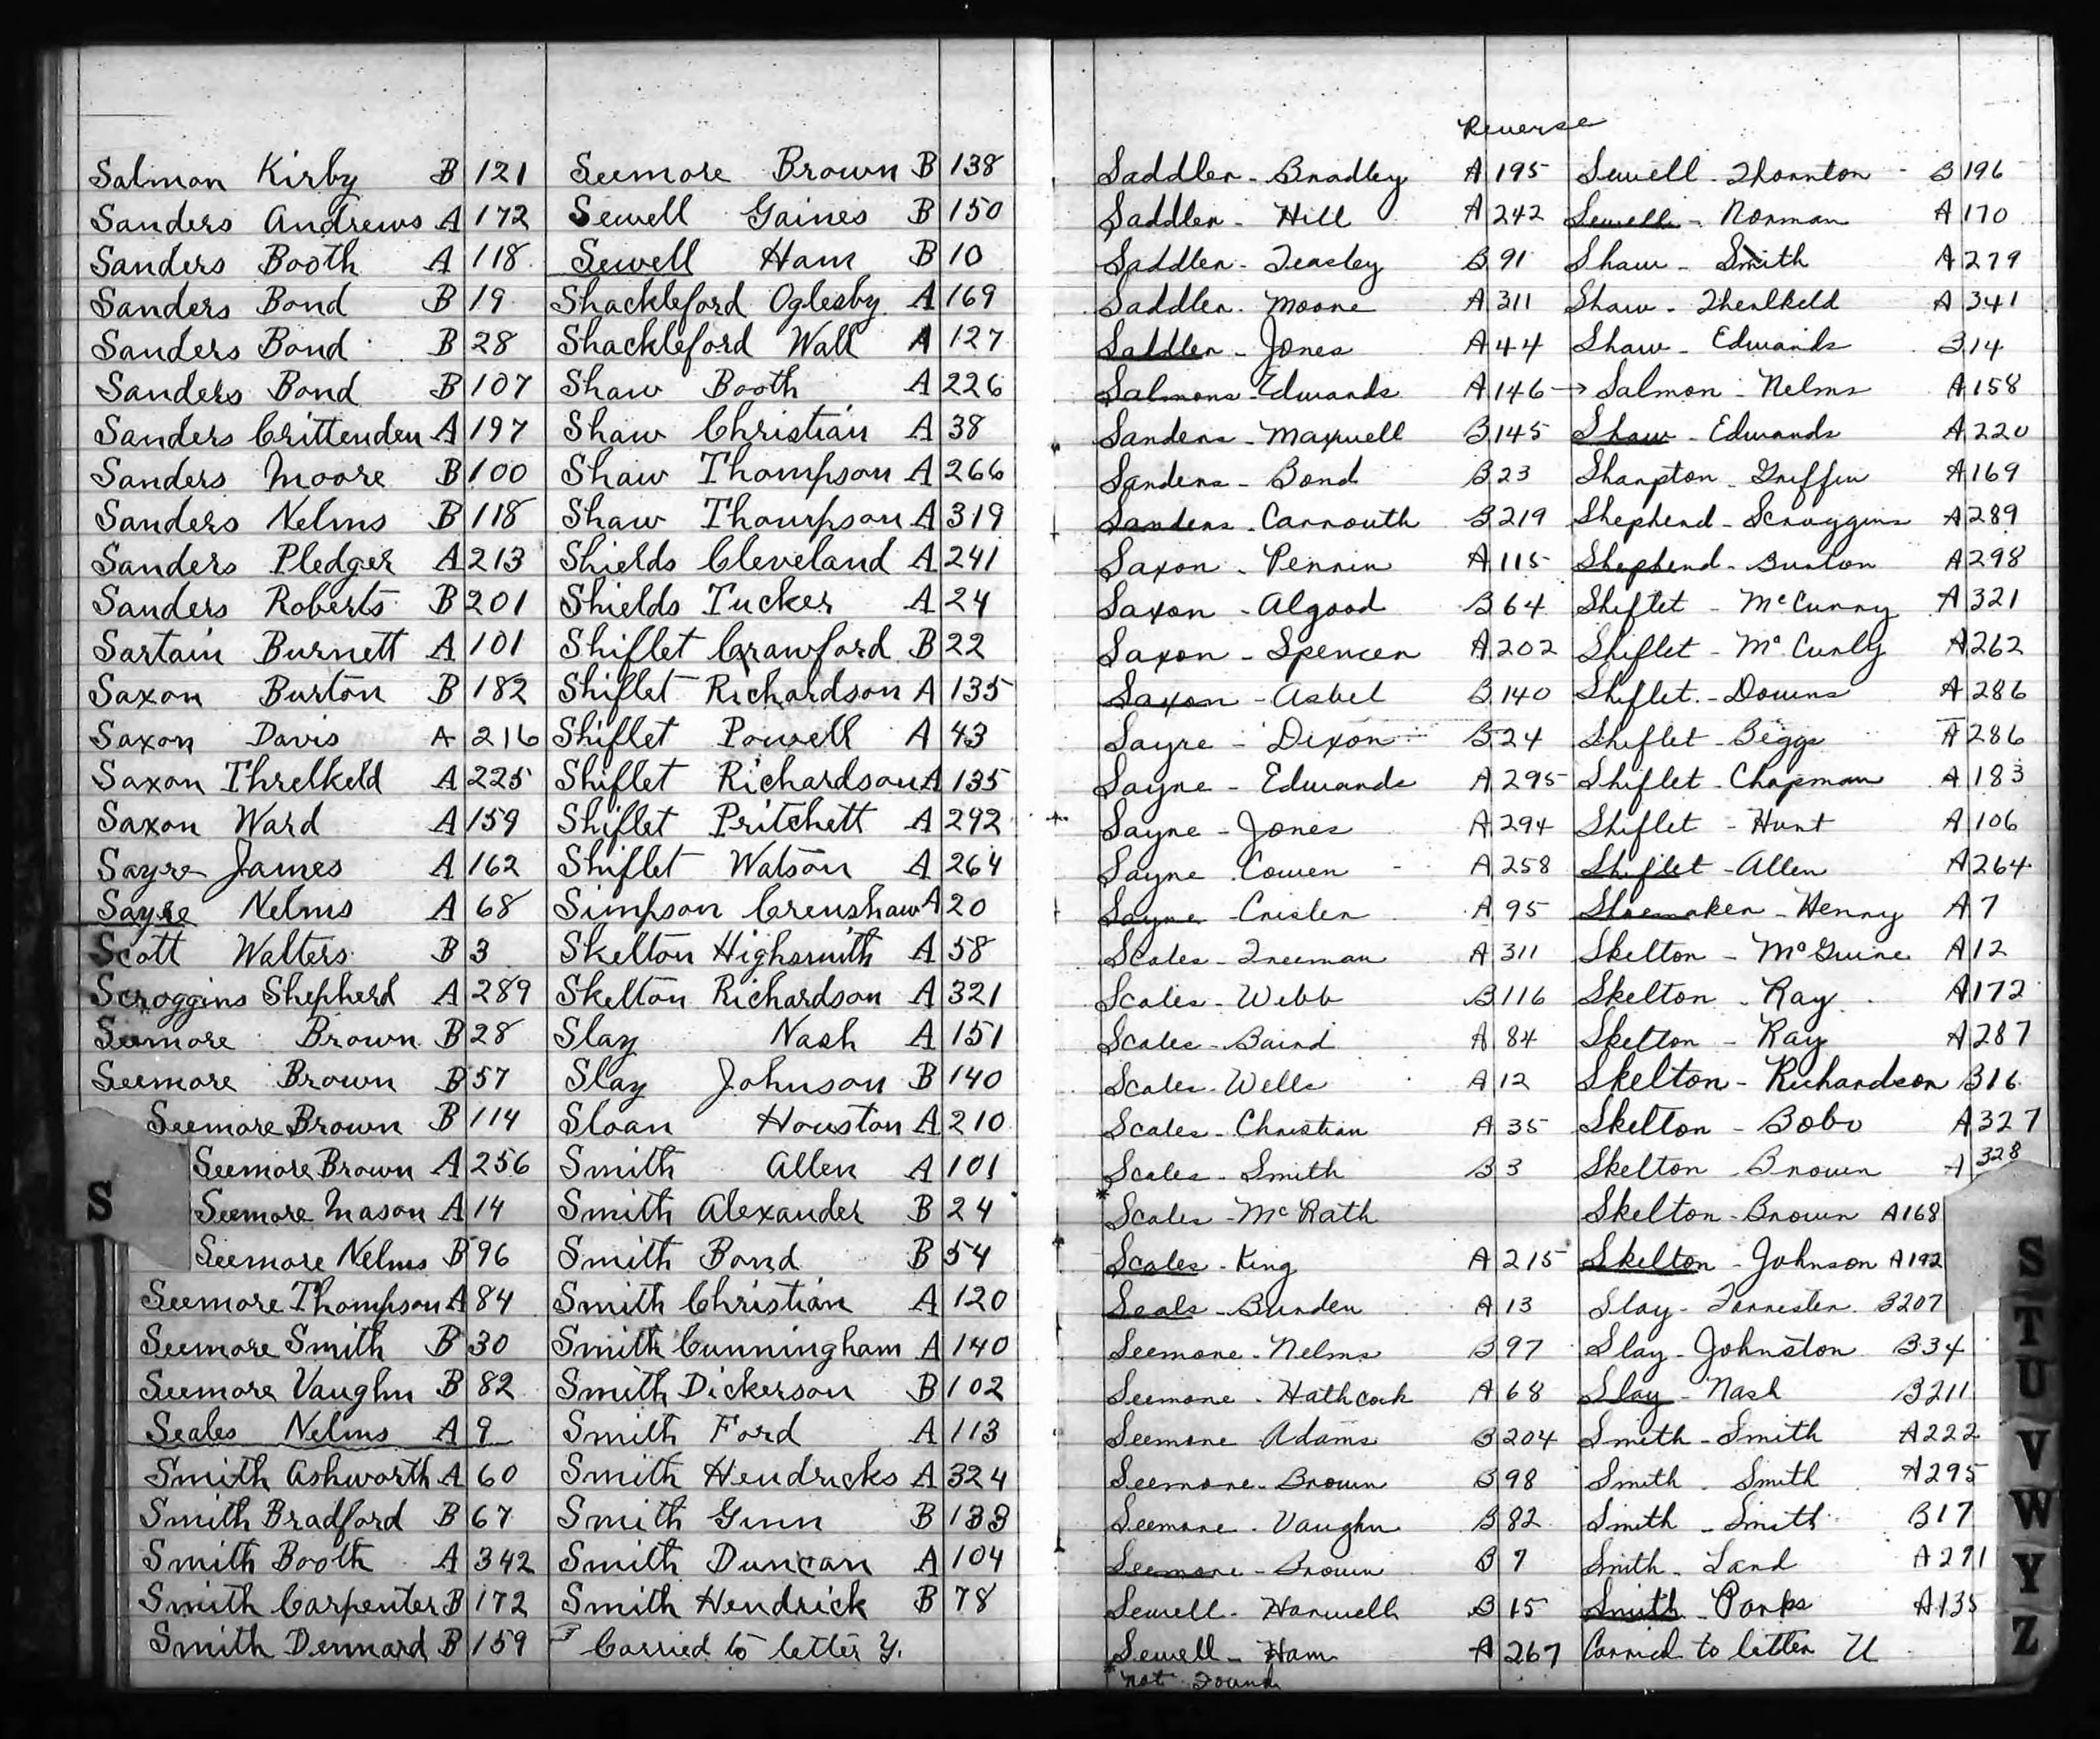 Salmon Kirby B 121
Sanders Andrews A 172
Sanders Booth A 118
Sanders Bond B 19
Sanders Bond B 28
Sanders Bond B 107
Sanders Crittenden A 197
Sanders Moore B 100
Sanders Nelms B 118
Sanders Pledger A 213
Sanders Roberts B 201
Sartain Burnett A 101
Saxon Burton B 182
Saxon Davis A 216
Saxon Threlkeld A 225
Saxon Ward A 159
Sayre James A 162
Sayre Nelms A 68
Scott Walters B 3
Scroggins Shepherd A 289
Seemore Brown B 28
Seemore Brown B 57
Seemore Brown B 114
Seemore Brown A 256
Seemore Mason A 14
Seemore Nelms B 96
Seemore Thompson A 84
Seemore Smith B 30
Seemore Vaughn B 82
Seales Nelms A 9
Smith Ashworth A 60
Smith Bradford B 67
Smith Booth A 342
Smith Carpenter B 172
Smith Dennard B 159
S
Seemore Brown B 138
Sewell Gaines B 150
Sewell Ham B 10
Shackleford Oglesby A 169
Shackleford Wall A 127
Shaw Booth A 226
Shaw Christian A 38
Shaw Thompson A 266
Shaw Thompson A 319
Shields Cleveland A 241
Shields Tucker A 24
Shiflet Crawford B 22
Shiflet Richardson A 135
Shiflet Powell A 43
Shiflet Richardson A 135
Shiflet Pritchett A 292
Shiflet Watson A 264
Simpson Crenshaw A 20
Skelton Highsmith A 58
Skelton Richardson A 321
Slay Nash A 151
Slay Johnson B 140
Sloan Houston A 210
Smith Allen A 101
Smith Alexander B 24
Smith Bond B 54
Smith Christian A 120
Smith Cunningham A 140
Smith Dickerson B 102
Smith Ford A 113
Smith Hendricks A 324
Smith Gunn B 133
Smith Duncan A 104
Smith Hendrick B 78
Carried to letter Y.
Reverse
Saddler - Bradley A 195
Saddler - Hill A 242
Saddler - Teasley B 91
Saddler - Moore A 311
Saddler - Jones A 44
Salmons - Edwards A 146 →
Sanders - Maxwell B 145
Sanders - Bond B 23
Sanders - Carrouth B 219
Saxon - Perrin A 115
Saxon - Algood B 64
Saxon - Spencer A 202
Saxon - Asbel B 140
Sayre - Dixon B 24
Sayre - Edwards A 295
Sayre - Jones A 294
Sayre Cowen - A 258
Sayre - Crisler A 95
Scales - Freeman A 311
Scales - Webb B 116
Scales - Baird A 84
Scales - Wells A 12
Scales - Christian A 35
Scales - Smith B 3
* Scales - McRath
Scales - King A 215
Seals - Burden A 13
Seemore - Nelms B 97
Seemore - Hathcock A 68
Seemore Adams B 204
Seemore - Brown B 98
Seemore - Vaughn B 82
Seemore - Brown B 7
Sewell - Harwell B 15
Sewell - Ham A 267
* not Found
Sewell - Thornton - B 196
Sewell - Norman A 170
Shaw - Smith A 279
Shaw - Therlkeld A 341
Shaw - Edwards B 14
Salmon - Nelms A 158
Shaw - Edwards A 220
Sharpton - Griffin A 169
Shepherd - Scroggins A 289
Shepherd - Burton A 298
Shiflet - McCurry A 321
Shiflet - McCurly A 262
Shiflet - Downs A 286
Shiflet - Biggs A 286
Shiflet - Chapman A 183
Shiflet - Hunt A 106
Shiflet - Allen A 264
Shoemaker - Henry A 7
Skelton - McGuire A 12
Skelton - Ray A 172
Skelton - Ray A 287
Skelton - Richardson B 16
Skelton - Bobo A 327
Skelton Brown A 328
Skelton - Brown A 168
Skelton - Johnson A 192
Slay - Forrester B 207
Slay - Johnston B 34
Slay - Nash B 211
Smith - Smith A 222
Smith - Smith A 295
Smith - Smith B 17
Smith - Land A 271
Smith - Parks A 135
Carried to letter U
S
T
U
V
W
Y
Z